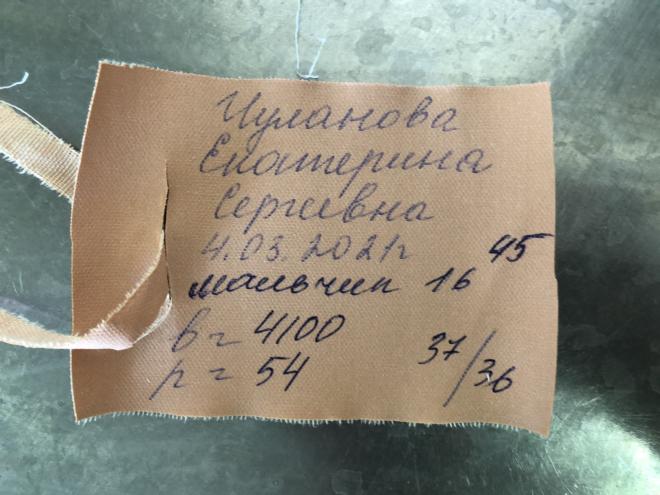 Чуланова
Екатерина
Сергеевна
4.03.2021г
мальчик 16 45
в = 4100
р = 54 37/36